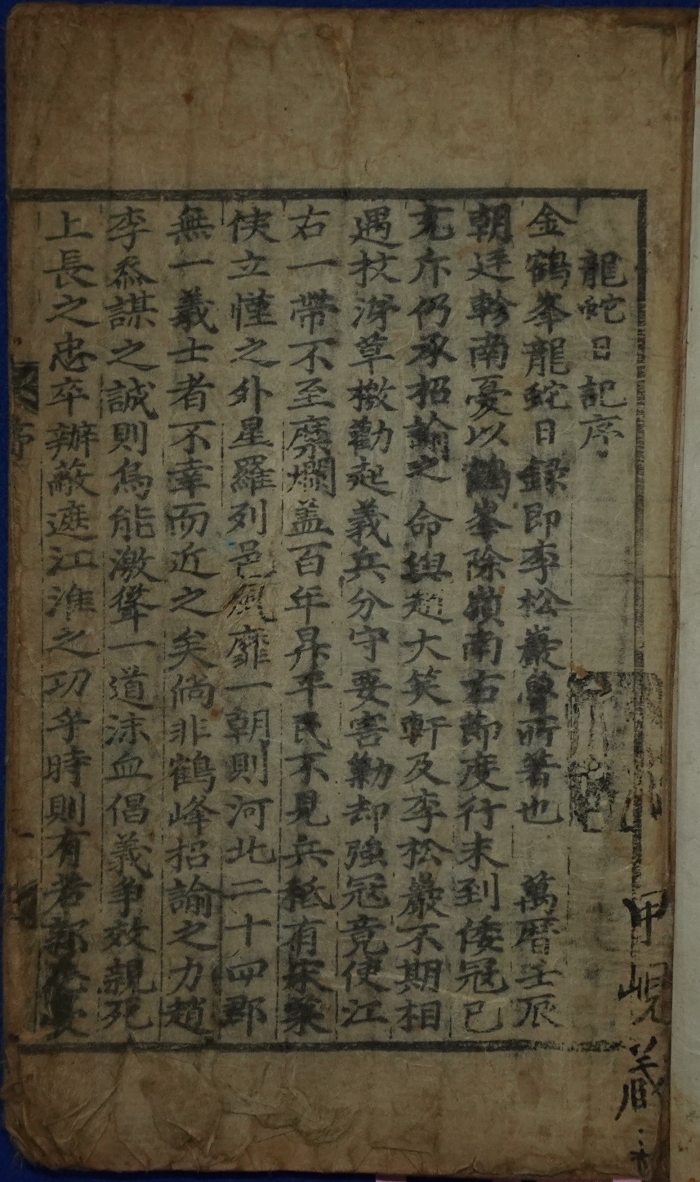 龍蛇日記序
金鶴峯龍蛇日録即李松巖魯所著也 萬曆壬辰
朝廷軫南憂以鶴峯除嶺南右節度行未到倭冦已
充斥仍承招諭之 命與趙大笑軒及李松巖不期相
遇扙淂草檄勸起義兵分守要害勦却強冦竟使江
右一帶不至糜爛盖百年昇平民不見兵秪有宋藥
使立慬之外星羅列邑風靡一朝則河北二十四郡
無一義士者不幸而近之矣倘非鶴峰招諭之力趙
李叅謀之誠則烏能激聳一道沫血倡義争效親死
上長之忠卒辦蔽遮江淮之功乎時則有若郭忘憂
序
甲峴
義